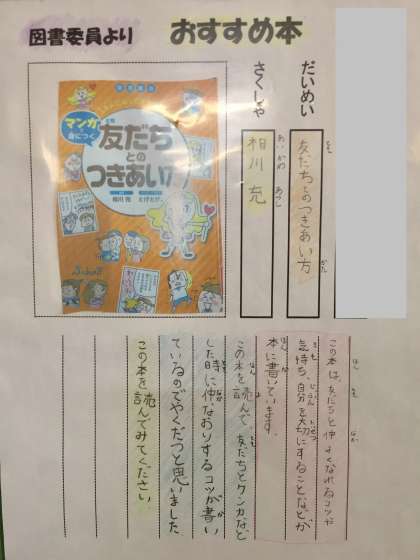 図書委員より
おすすめ本
だいめい
友だちとのつきあい方
とも
かた
さくしゃ
相川 充
あいかわ あつし
マンガで
身につく
友だち
との
つきあい方
相川 充
この本は、友だちと仲よくなれるコツや
気持ち、自分を大切にすることなどが
本に書いています。
この本を読んで、友だちとケンカなど
した時に仲なおりするコツが書い
ているのでやくだつと思いました
この本を読んでみてください